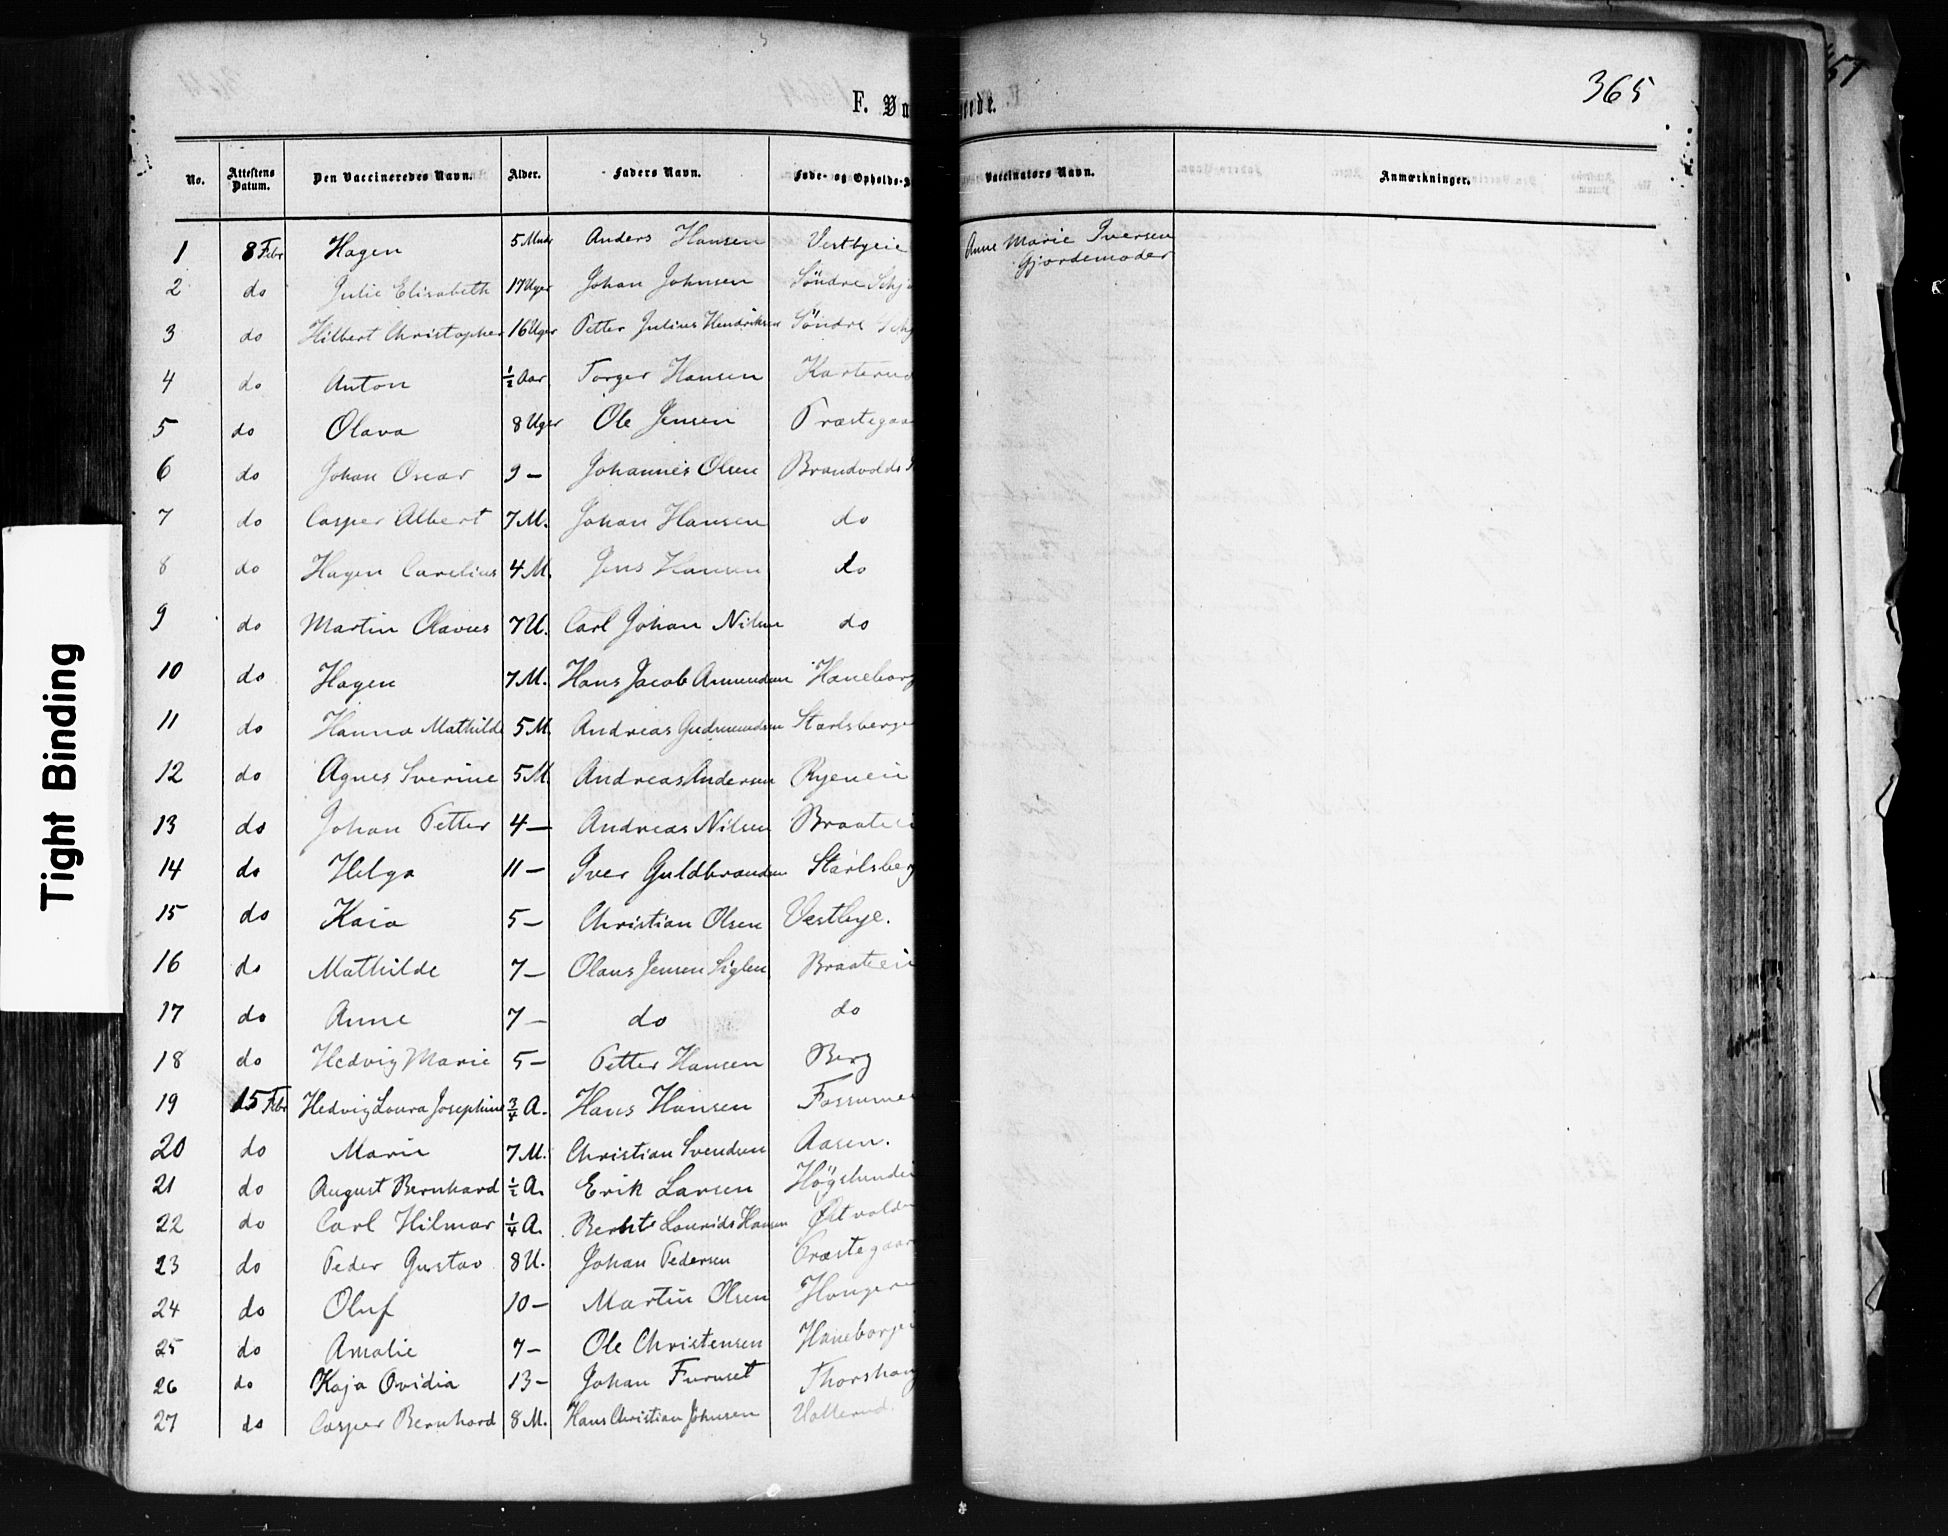 365
57
F. Va
erede.
No. Attestens Datum. Den Vaccineredes Navn. Alder. Faders Navn. Føde- og Opholds- Vaccinators Navn. Anmærkninger.
1 8 Febr Hagen 5 Mndr Anders Hansen Vestbyeie Anne Marie Iversen
Gjordemoder
2 do Julie Elisabeth 17 Uger Johan Johnsen Söndre Schj
3 do Hilbert Christopher 16 Uger Petter Julius Hendriksen Söndre Schj
4 do Anton ½ Aar Torger Hansen Karterud
5 do Olava 8 Uger Ole Jensen Præstegaa
6 do Johan Oscar 9 — Johannes Olsen Brandvolds
7 do Casper Albert 7 M. Johan Hansen do
8 do Hagen Carelius 4 M. Jens Hansen do
9 do Martin Olavus 7 U. Carl Johan Nilsen do
10 do Hagen 7 M. Hans Jacob Amundsen Haneborg
11 do Hanna Mathilde 5 M. Andreas Gudmundsen Starlsberg
12 do Agnes Sverine 5 M. Andreas Andersen Ryeneie
13 do Johan Petter 4 — Andreas Nilsen Braatei
14 do Helga 11 — Iver Guldbrandsen Starlsberg
15 do Kaia 5 — Christian Olsen Vestbye.
16 do Mathilde 7 — Olaus Jensen Siglen Braatei
17 do Anne 7 — do do
18 do Hedvig Marie 5 — Petter Hansen Berg
19 15 Febr Hedvig Laura Josephine ¾ A. Hans Hansen Fossume
20 do Marie 7 M. Christian Svendsen Aasen.
21 do August Bernhard ½ A. Erik Larsen Högslundei
22 do Carl Hilmar ¼ A. Laurids Hansen Østvolde
23 do Peder Gustav 8 U. Johan Pedersen Præstegaar
24 do Oluf 10 — Martin Olsen Haugere
25 do Amalie 7 — Ole Christensen Haneborgei
26 do Kaja Ovidia 13 — Johan Furuset Thorshaug
27 do Casper Bernhard 8 M. Hans Christian Johnsen Hallerud.
Tight Binding